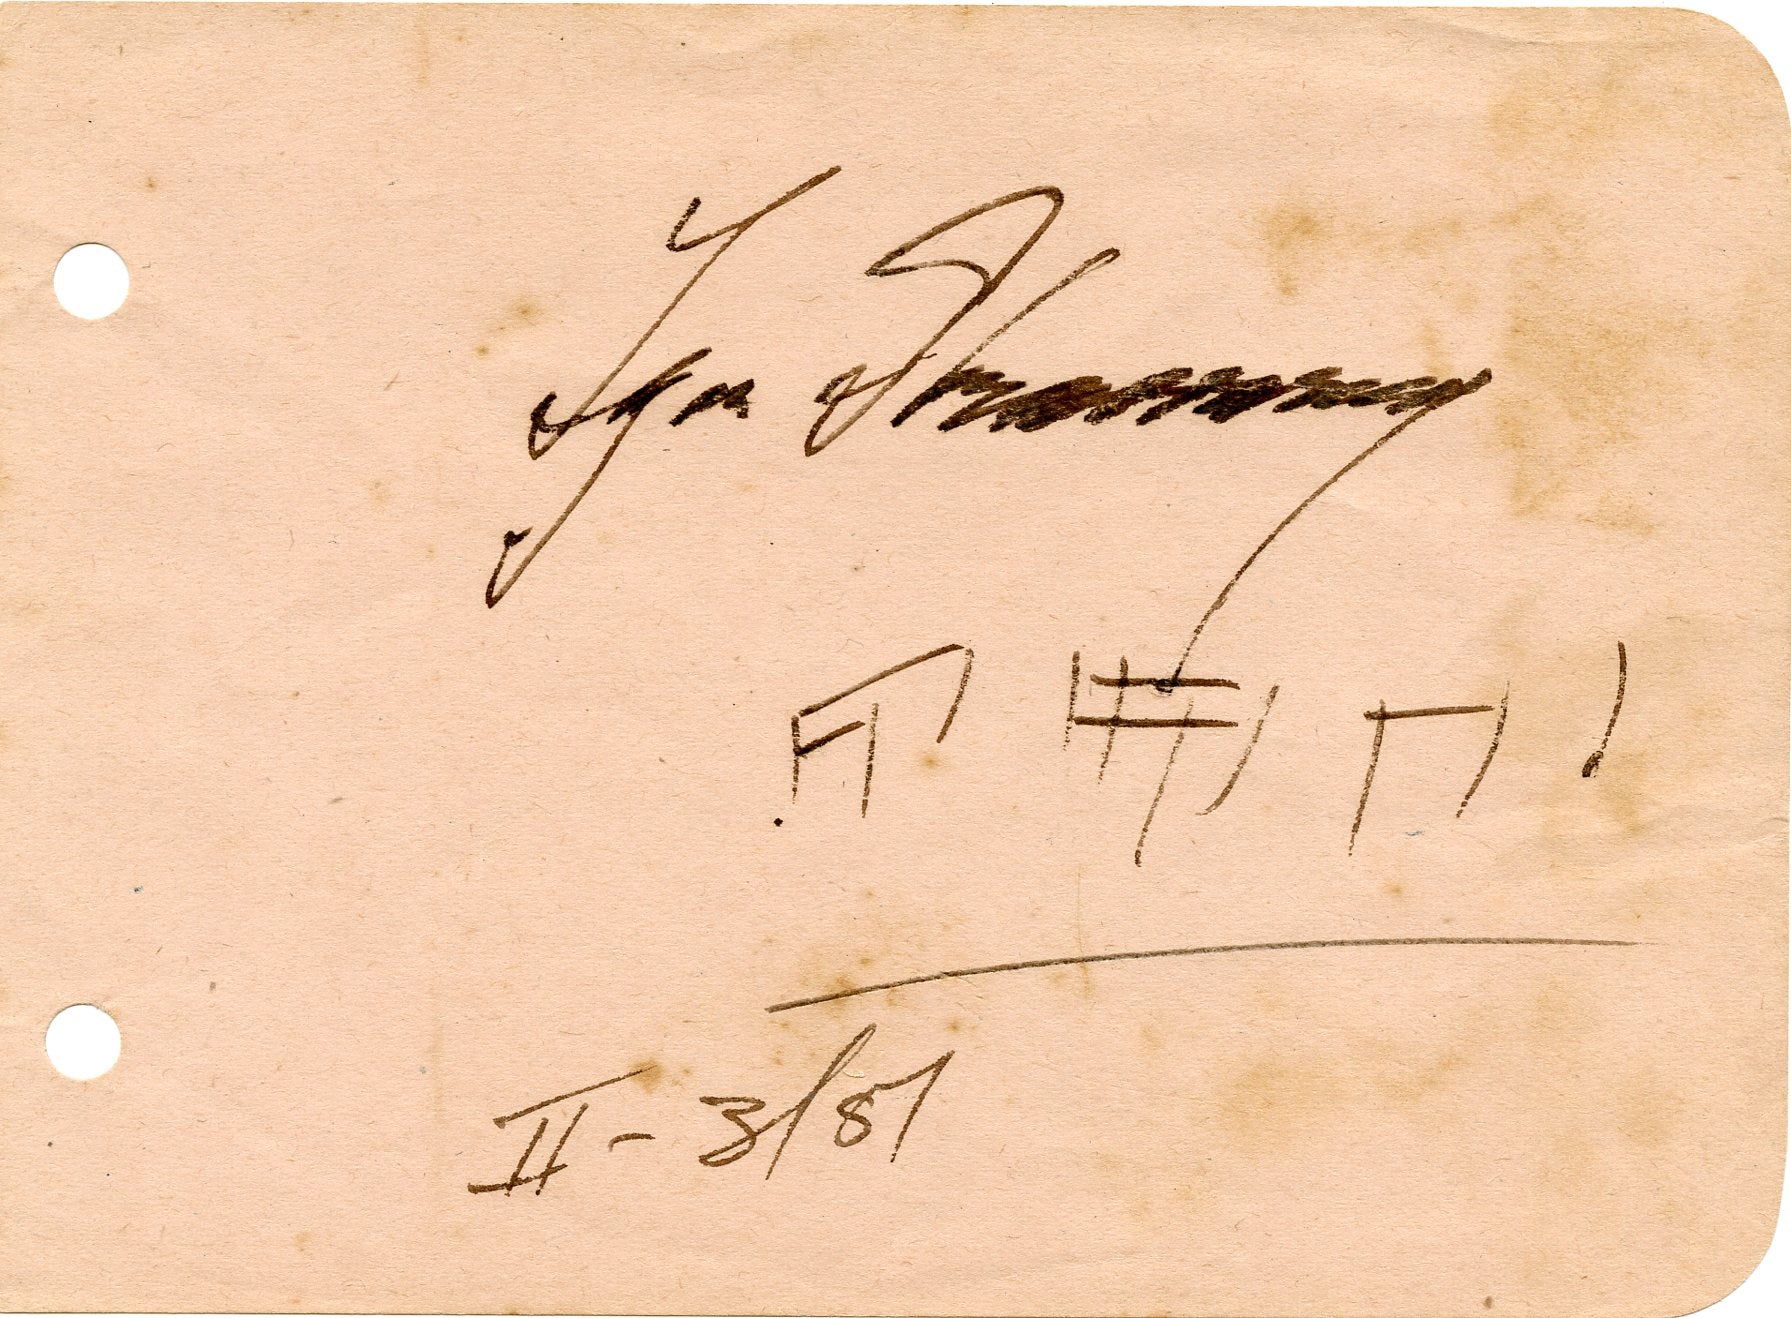 Igor Strawinsky
II - 3/51